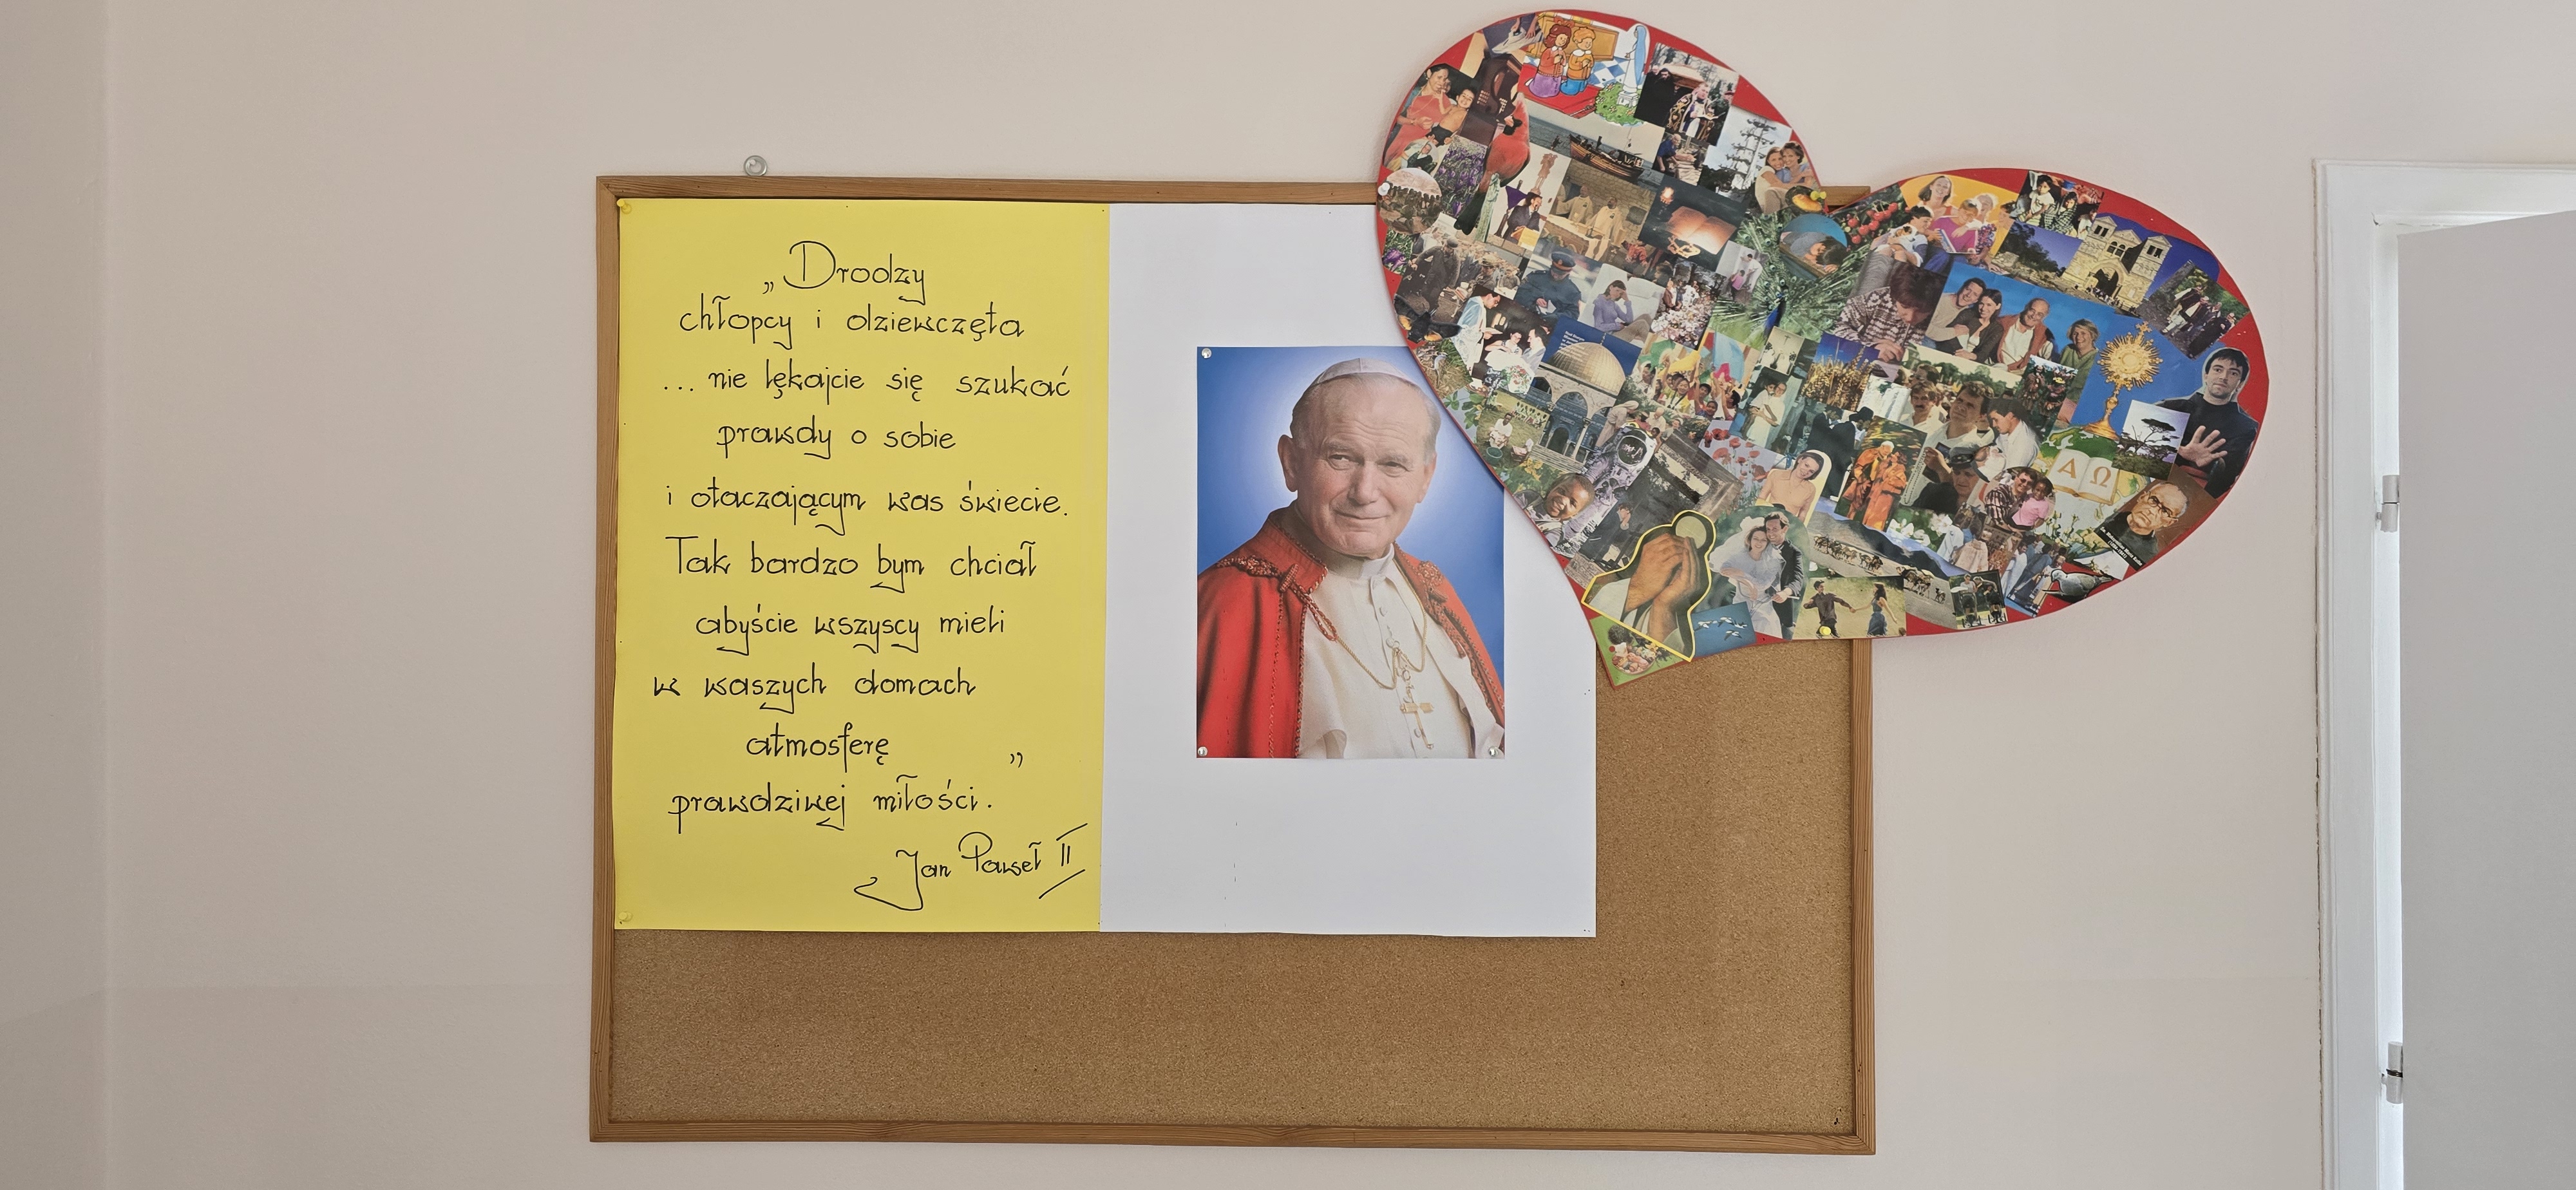 „Drodzy
chłopcy i dziewczęta
... nie lękajcie się szukać
prawdy o sobie
i otaczającym was świecie.
Tak bardzo bym chciał
abyście wszyscy mieli
w waszych domach
atmosferę
prawdziwej miłości.”
Jan Paweł II
A Ω